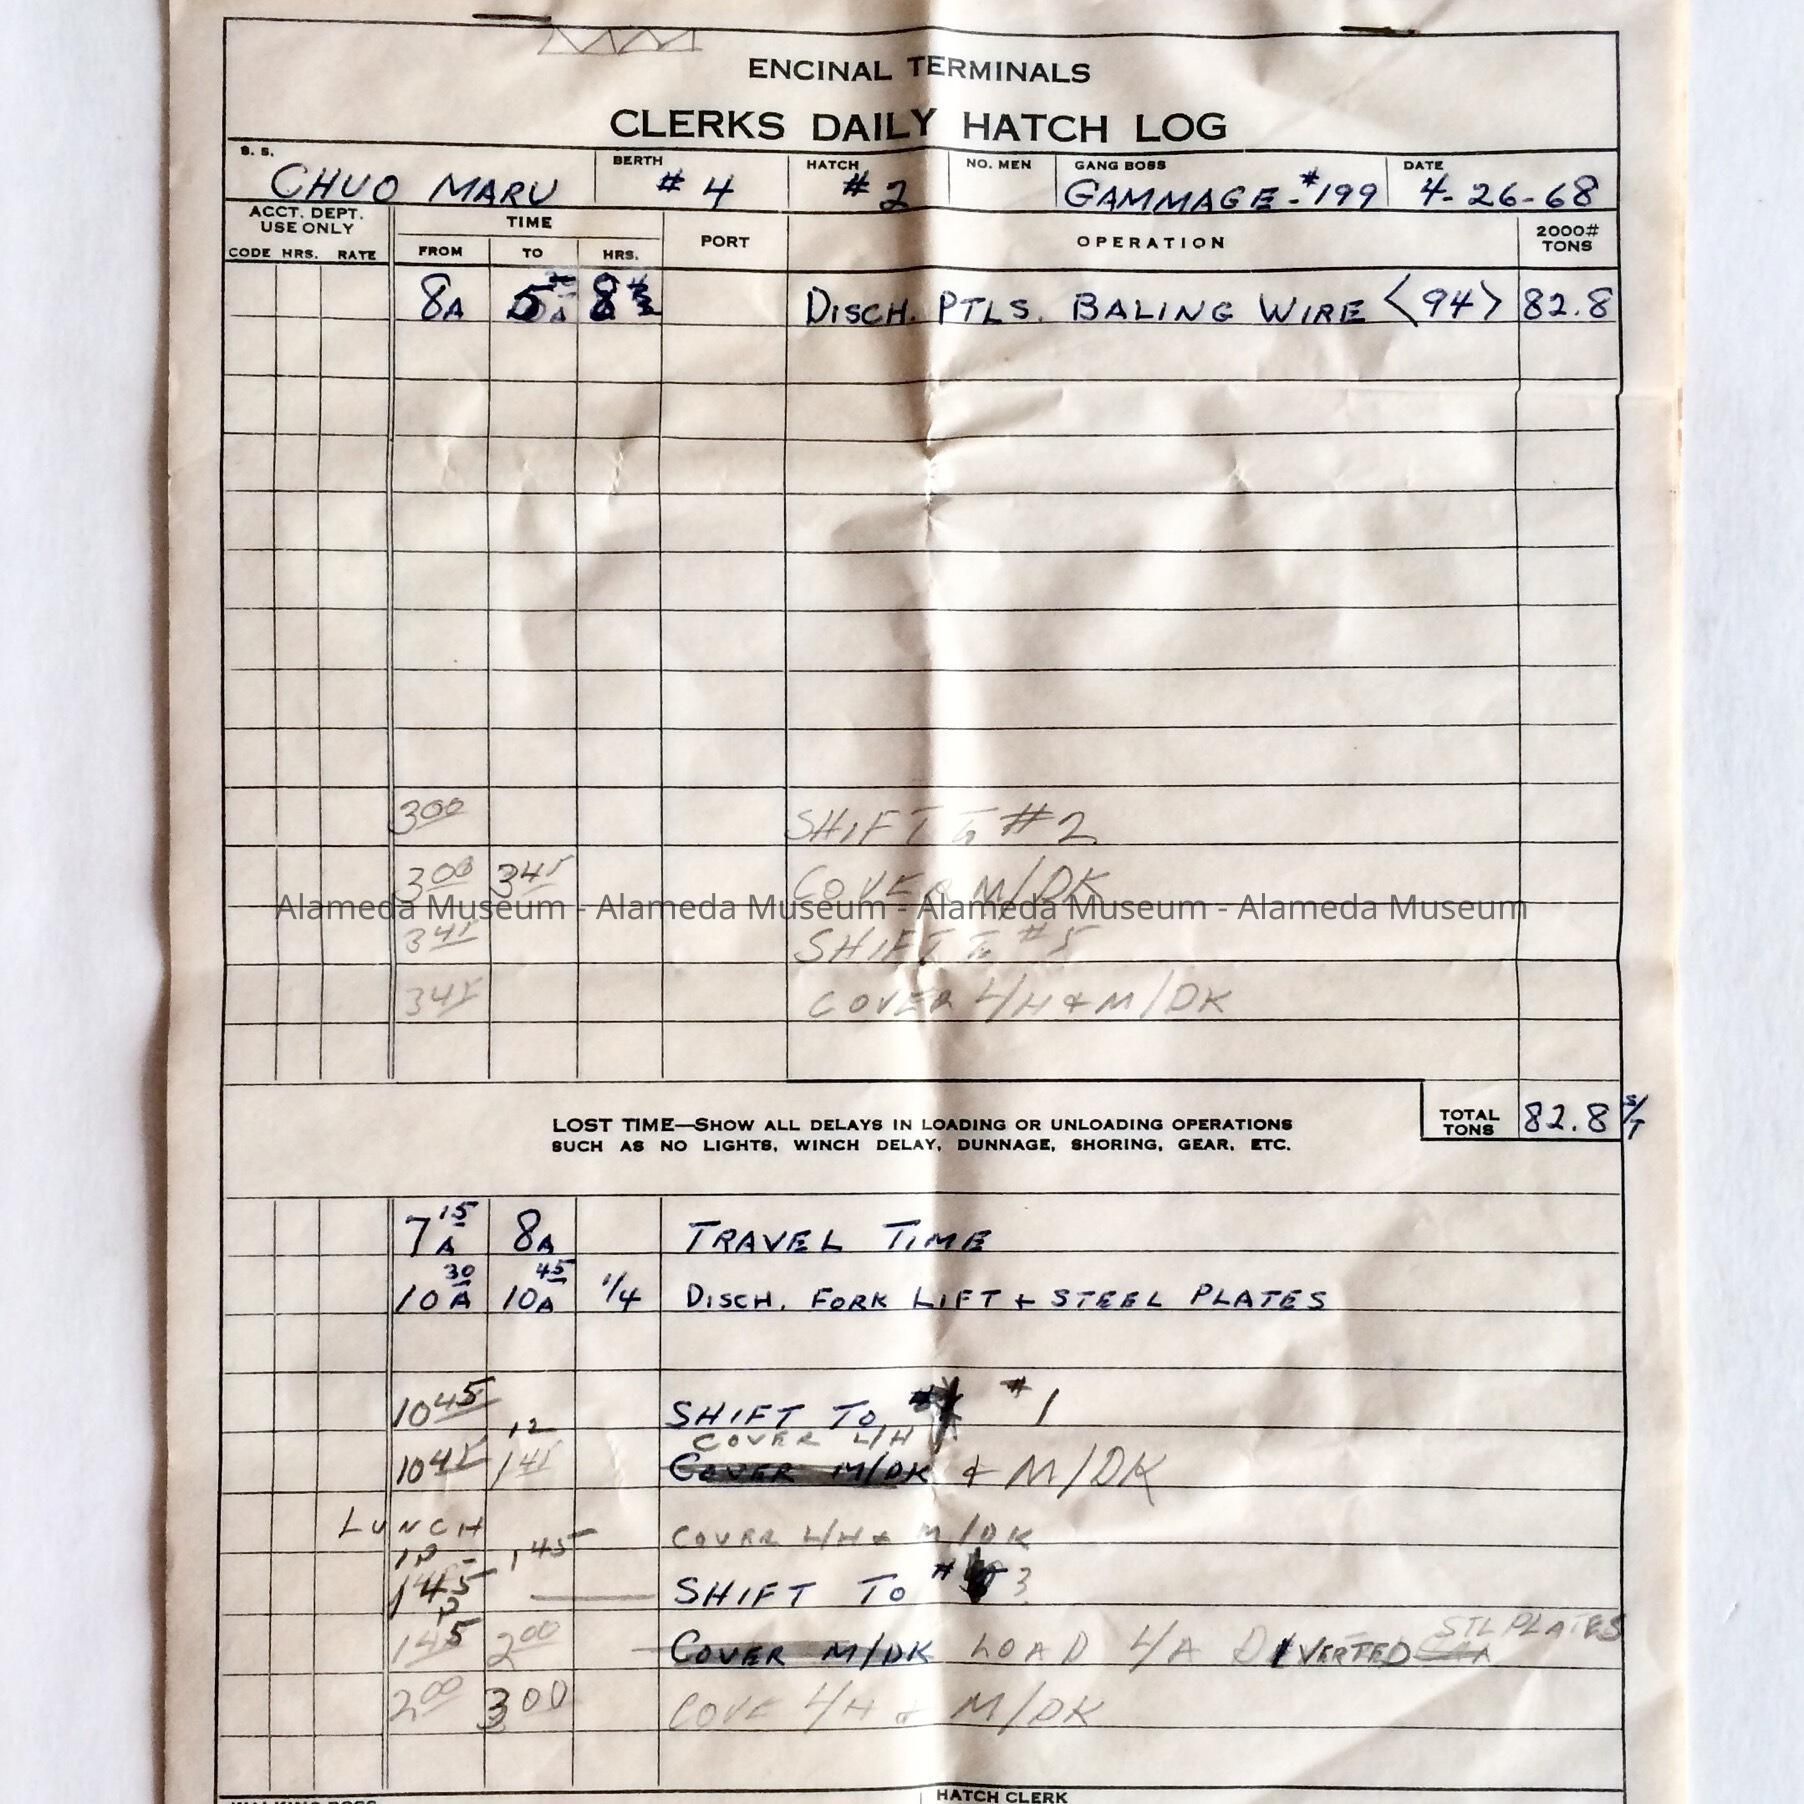 ENCINAL TERMINALS
CLERKS DAILY HATCH LOG
S. S. CHUO MARU BERTH # 4 HATCH # 2 NO. MEN GANG BOSS GAMMAGE - #199 DATE 4-26-68
ACCT. DEPT. USE ONLY TIME PORT OPERATION 2000# TONS
CODE HRS. RATE FROM TO HRS.
8A DISCH. PTLS. BALING WIRE <94> 82.8
300 SHIFT TO #2
300 345 COVER M/DK
Alameda Museum - Alameda Museum - Alameda Museum - Alameda Museum
345 SHIFT TO #5
345 COVER L/H & M/DK
LOST TIME—SHOW ALL DELAYS IN LOADING OR UNLOADING OPERATIONS
SUCH AS NO LIGHTS, WINCH DELAY, DUNNAGE, SHORING, GEAR, ETC.
TOTAL TONS 82.8 S/T
7 15 A 8A TRAVEL TIME
10 30 A 10 45 A 1/4 DISCH. FORK LIFT + STEEL PLATES
1045 SHIFT TO #1
12 COVER L/H
1045 145 COVER M/DK & M/DK
LUNCH COVER L/H & M/DK
1P 145
145 P SHIFT TO # 3
STL PLATES
145 200 COVER M/DK LOAD L/A DIVERTED
200 300 COVE L/H & M/DK
HATCH CLERK